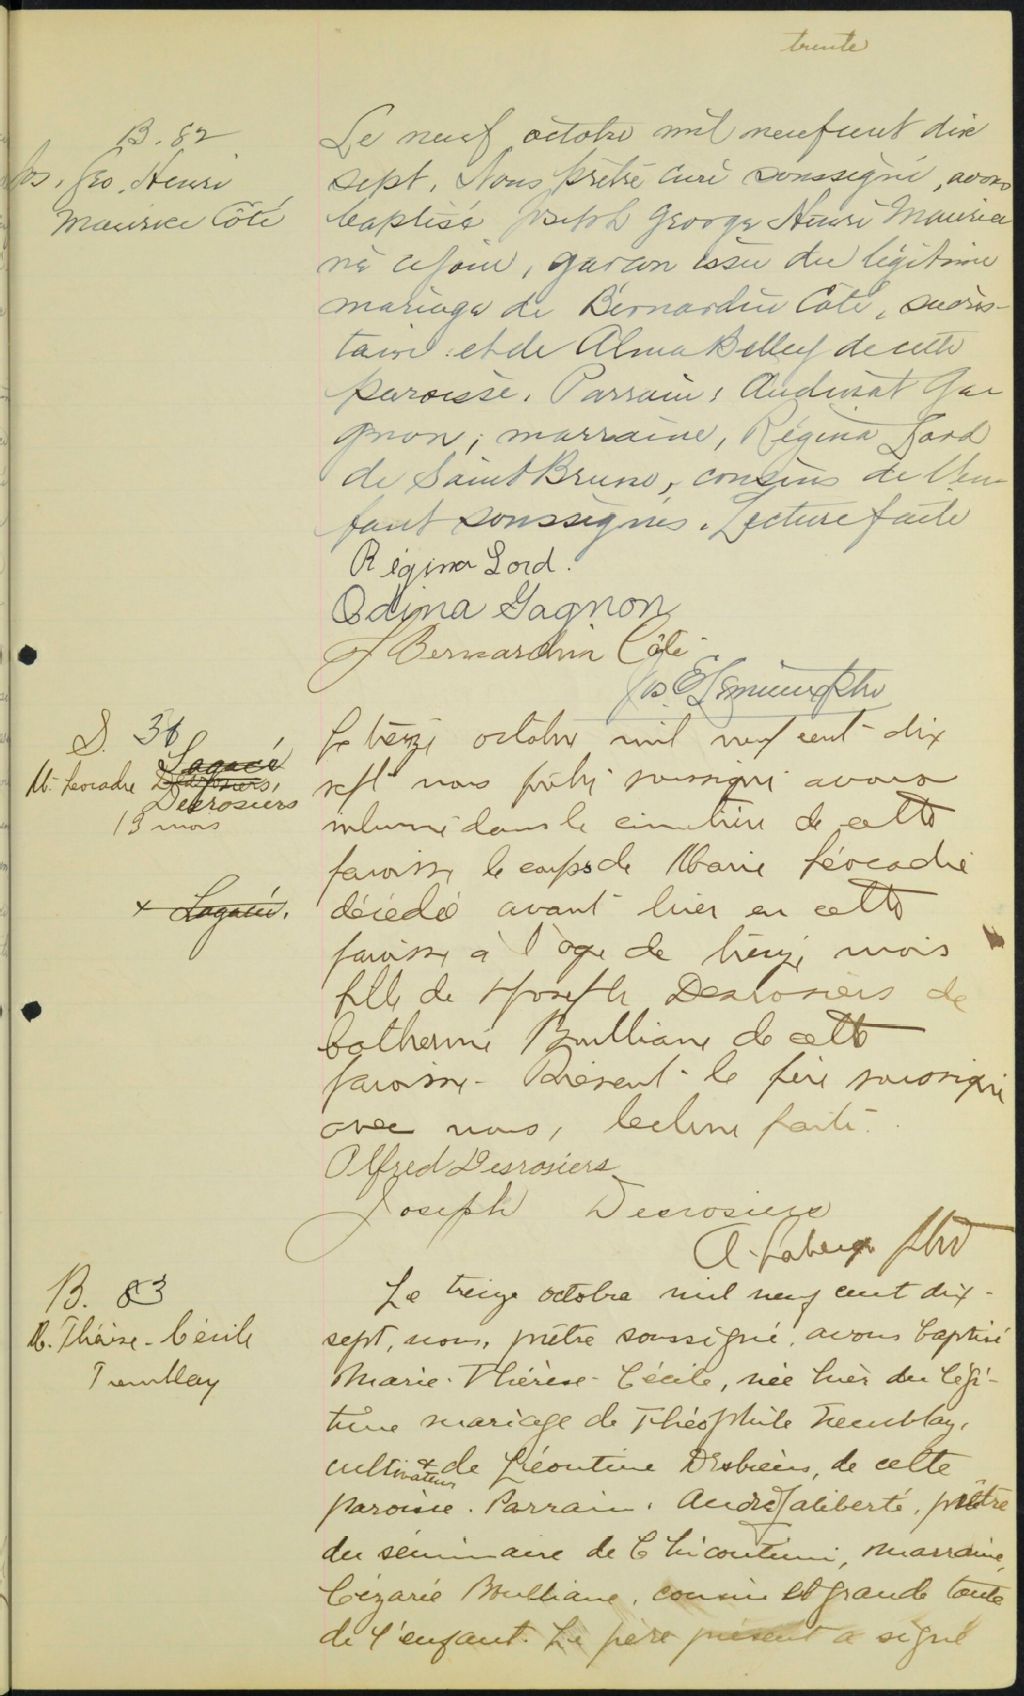 trente
B. 82
Jos. Geo. Henri
Maurice Côté
Le neuf octobre mil neuf cent dix
sept, Nous prêtre curé soussigné, avons
baptisé Joseph George Henri Maurice
né ce jour, garcon issu du légitime
mariage de Bernardin Côté, secrés-
taire et de Alma Belley de cette
paroisse. Parrain: Gag
gnon; marraine, Régina Lord
de Saint Bruno, cousins de l'en-
fant soussignés. Lecture faite
Régina Lord.
Odina Gagnon
J Bernardin Côté
Jos. E. Ptre
S. 36
Lagacé
M. Léocadie Desrosiers,
Desrosiers
13 mois
x Lagacé.
Le treize octobre mil neuf cent dix
sept nous prêtre soussigné avons
inhumé dans le cimetière de cette
paroisse le corps de Marie Léocadie
décédée avant hier en cette
paroisse à l'age de treize mois
fille de Joseph Desrosiers de
Catherine Boulliane de cette
paroisse - Présent le père soussigné
avec nous, lecture faite.
Alfred Desrosiers
Joseph Desrosiers
A. Laberge ptre
B. 83
M. Thérèse-Cécile
Tremblay
Le treize octobre mil neuf cent dix-
sept, nous, prêtre soussigné, avons baptisé
Marie-Thérèse-Cécile, née hier du légi-
time mariage de Théophile Tremblay,
cultivateur & de Léontine Desbiens, de cette
paroisse. Parrain: André Jaliberté, prêtre
du séminaire de Chicoutimi, marraine,
Cézarée Boulliane, cousin et grande tante
de l'enfant. Le père présent a signé